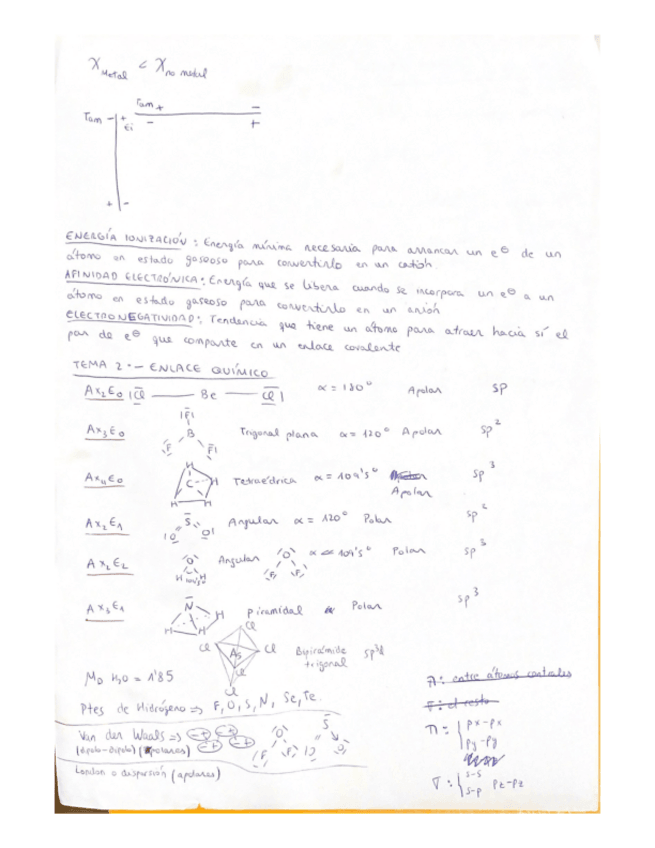 X Metal < X no metal
Tam +      -
Tam - +   -      +
Ei
+ -
ENERGÍA IONIZACIÓN: Energía mínima necesaria para arrancar un e⊖ de un
átomo en estado gaseoso para convertirlo en un catión.
AFINIDAD ELECTRÓNICA: Energía que se libera cuando se incorpora un e⊖ a un
átomo en estado gaseoso para convertirlo en un anión
ELECTRONEGATIVIDAD: Tendencia que tiene un átomo para atraer hacia sí el
par de e⊖ que comparte en un enlace covalente
TEMA 2.- ENLACE QUÍMICO
AX₂E₀ |Cl — Be — Cl| α = 180° Apolar sp
AX₃E₀ |F| B F F Trigonal plana α = 120° Apolar sp²
AX₄E₀ H C H H H Tetraédrica α = 109'5° Apolar sp³
AX₂E₁ S O O Angular α = 120° Polar sp²
AX₂E₂ O H H Angular O F F α << 109'5° Polar sp³
AX₃E₁ N H H H Piramidal Polar sp³
Cl Cl As Cl Cl Cl Bipirámide trigonal sp³d
M_D H₂O = 1'85
Ptes de Hidrógeno => F, O, S, N, Se, Te.
Van der Waals => (-+) (-+) (-+) (-+) O F F S O O
(dipolo-dipolo) (polares)
London o dispersión (apolares)
π: entre átomos centrales
σ: el resto
π: { px-px
py-py
σ: { s-s
s-p pz-pz